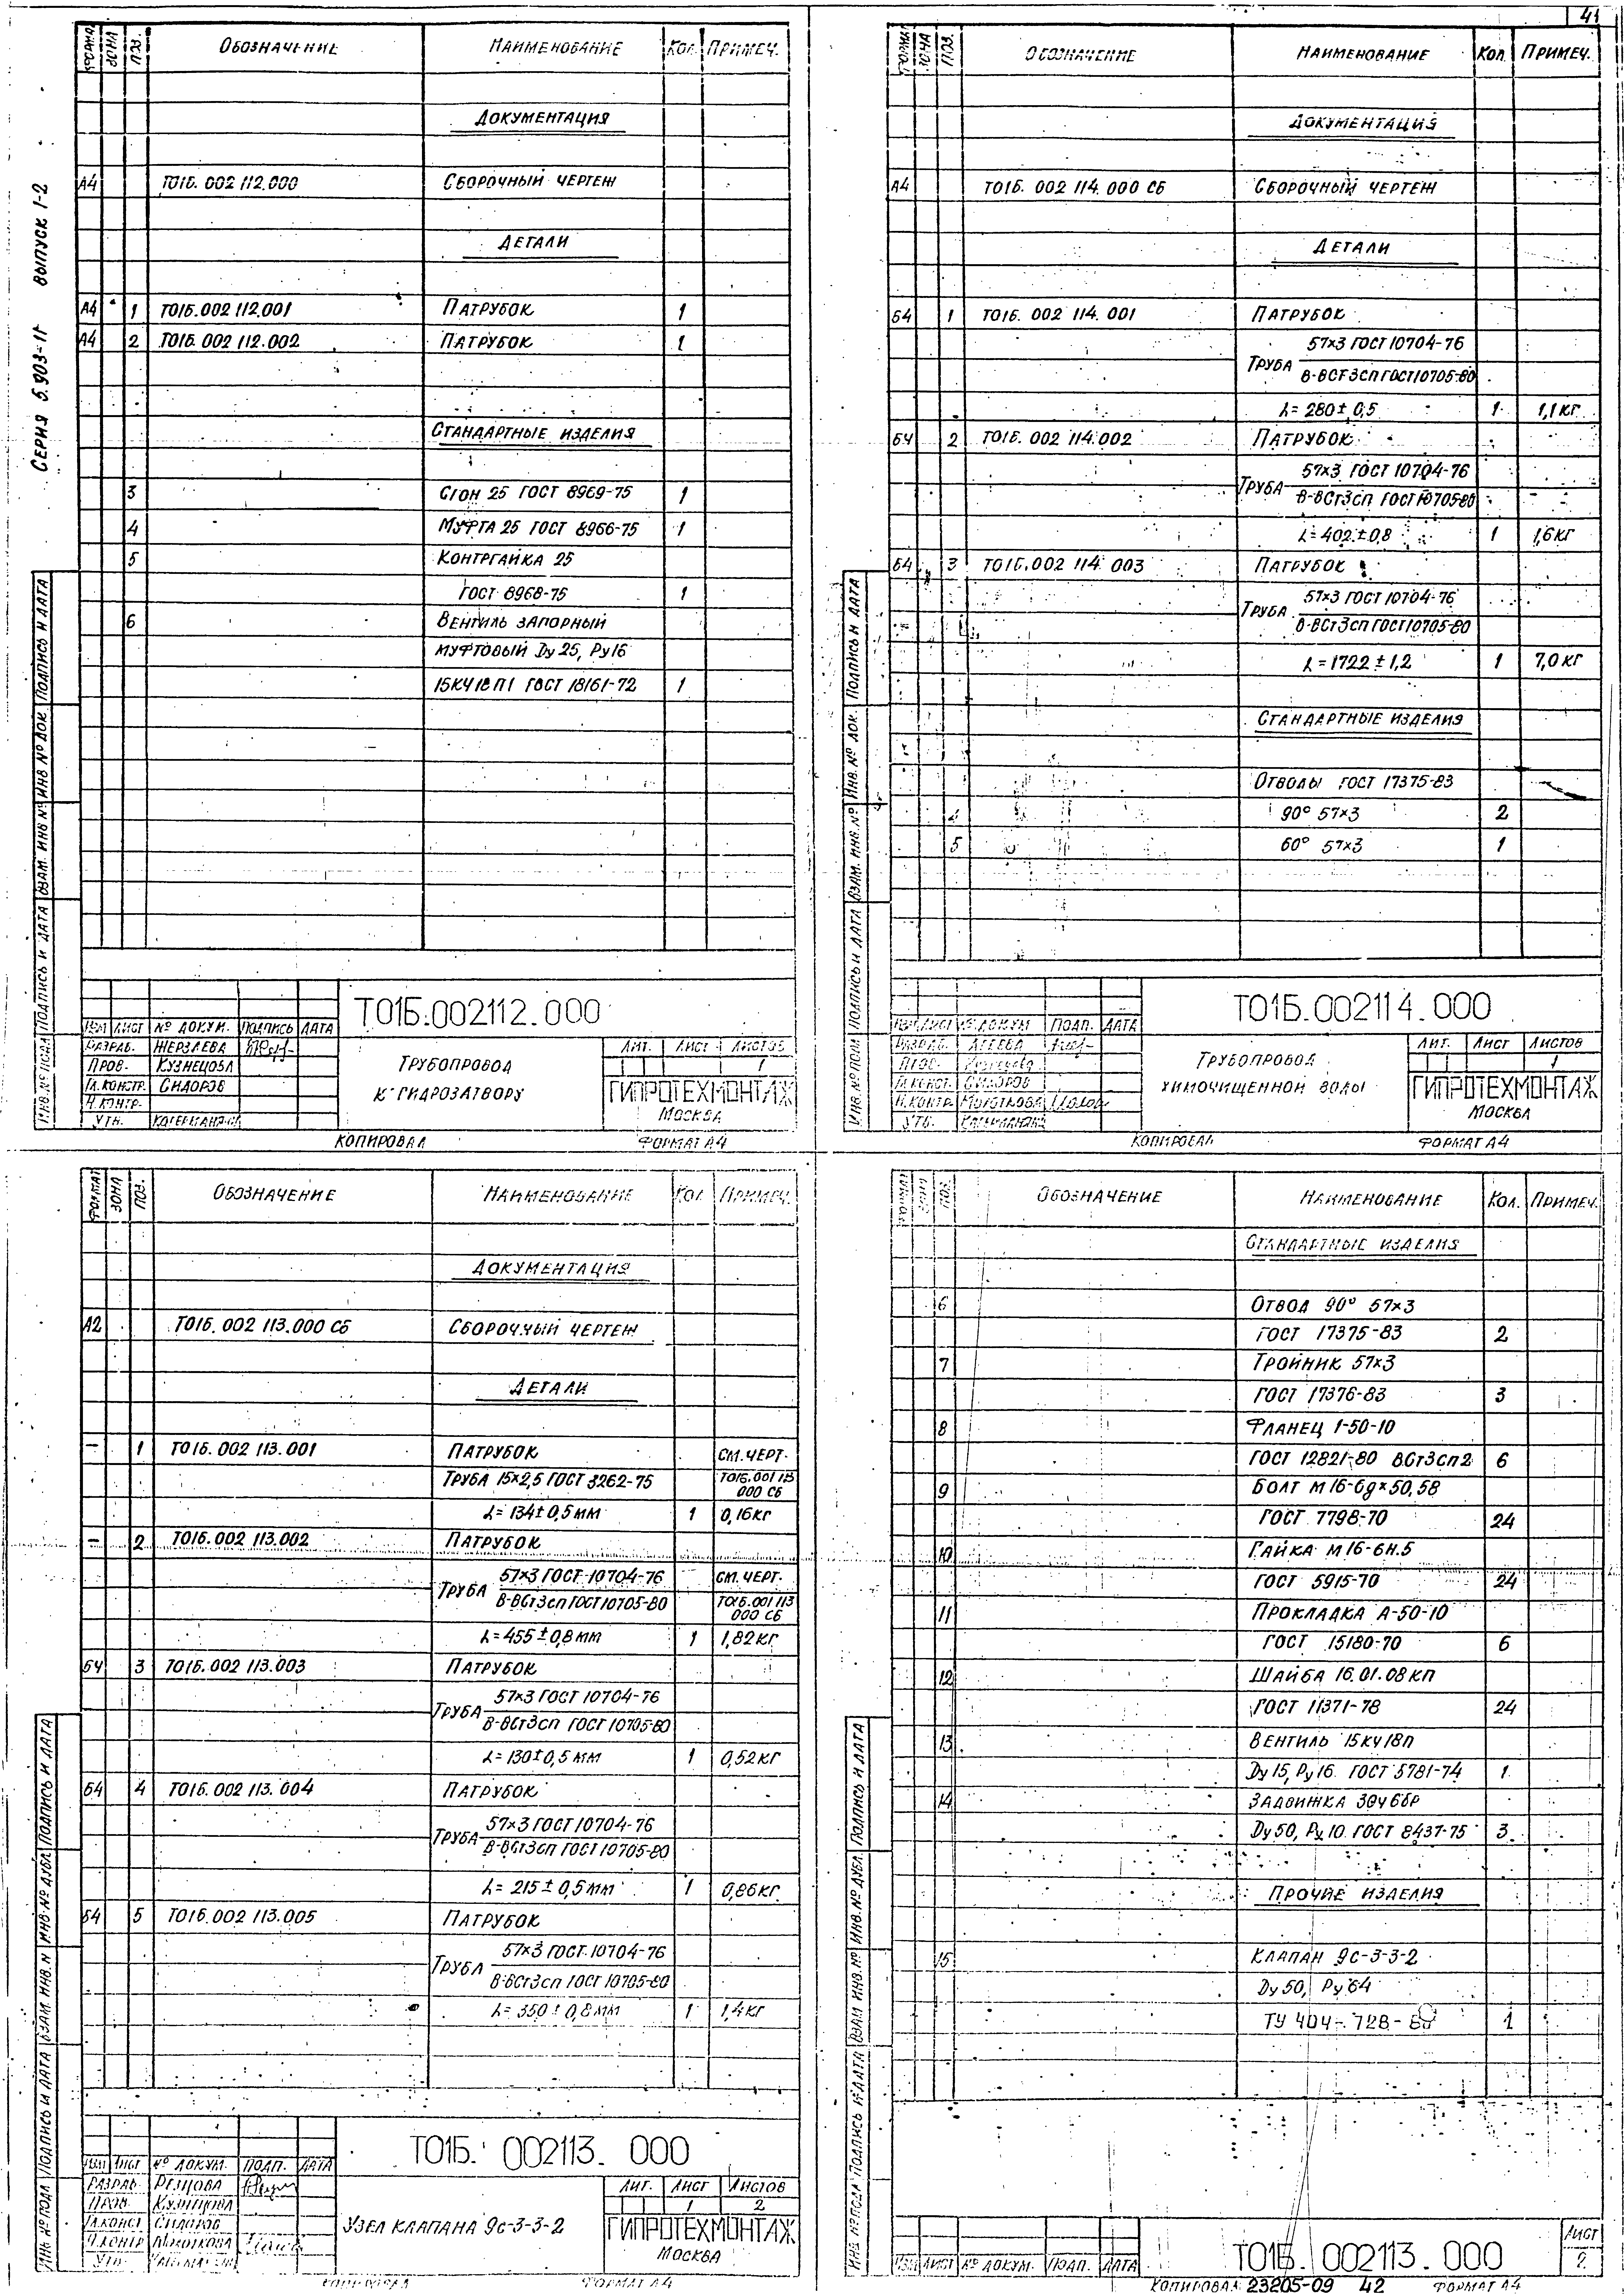 41
Серия 5.903-11 выпуск 1-2
Формат Зона Поз. Обозначение Наименование Кол. Примеч.
Документация
А4 Т01Б.002 112.000 Сборочный чертеж
Детали
А4 1 Т01Б.002 112.001 Патрубок 1
А4 2 Т01Б.002 112.002 Патрубок 1
Стандартные изделия
3 Сгон 25 ГОСТ 8969-75 1
4 Муфта 25 ГОСТ 8966-75 1
5 Контргайка 25
ГОСТ 8968-75 1
6 Вентиль запорный
муфтовый Dу 25, Ру 16
15КЧ18П1 ГОСТ 18161-72 1
Инв. № подл Подпись и дата Взам. инв № Инв № док. Подпись и дата
Т01Б.002112.000
Изм Лист № докум. Подпись Дата
Разраб. Жерзлева
Пров. Кузнецова
Гл.констр. Сидоров
Н.контр.
Утв.
Трубопровод
к гидрозатвору
Лит. Лист Листов
1
ГИПРОТЕХМОНТАЖ
Москва
Копировал Формат А4
Формат Зона Поз. Обозначение Наименование Кол. Примеч.
Документация
А4 Т01Б.002 114.000 СБ Сборочный чертеж
Детали
Б4 1 Т01Б.002 114.001 Патрубок
57×3 ГОСТ 10704-76
Труба
В-ВСт3сп ГОСТ 10705-80
L=280±0,5 1 1,1 кг
Б4 2 Т01Б.002 114.002 Патрубок
57×3 ГОСТ 10704-76
Труба
В-ВСт3сп ГОСТ 10705-80
L=402±0,8 1 1,6 кг
Б4 3 Т01Б.002 114 003 Патрубок
57×3 ГОСТ 10704-76
Труба
В-ВСт3сп ГОСТ 10705-80
L=1722±1,2 1 7,0 кг
Стандартные изделия
Отводы ГОСТ 17375-83
4 90° 57×3 2
5 60° 57×3 1
Инв. № подл Подпись и дата Взам. инв. № Инв. № док. Подпись и дата
Т01Б.002114.000
Изм Лист № докум Подп. Дата
Разраб. Агеева
Пров.
Гл.конст. Сидоров
Н.контр.
Утв.
Трубопровод
химочищенной воды
Лит. Лист Листов
1
ГИПРОТЕХМОНТАЖ
Москва
Копировал Формат А4
Формат Зона Поз. Обозначение Наименование Кол Примеч.
Документация
А2 Т01Б.002 113.000 СБ Сборочный чертеж
Детали
— 1 Т01Б.002 113.001 Патрубок см. черт.
Труба 15×2,5 ГОСТ 3262-75 Т01Б.001 113
000 СБ
L=134±0,5 мм 1 0,16 кг
— 2 Т01Б.002 113.002 Патрубок
57×3 ГОСТ 10704-76 см. черт.
Труба
В-ВСт3сп ГОСТ 10705-80 Т01Б.001 113
000 СБ
L=455±0,8 мм 1 1,82 кг
Б4 3 Т01Б.002 113.003 Патрубок
57×3 ГОСТ 10704-76
Труба
В-ВСт3сп ГОСТ 10705-80
L=130±0,5 мм 1 0,52 кг
Б4 4 Т01Б.002 113.004 Патрубок
57×3 ГОСТ 10704-76
Труба
В-ВСт3сп ГОСТ 10705-80
L=215±0,5 мм 1 0,86 кг
Б4 5 Т01Б.002 113.005 Патрубок
57×3 ГОСТ 10704-76
Труба
В-ВСт3сп ГОСТ 10705-80
L=350±0,8 мм 1 1,4 кг
Инв № подл Подпись и дата Взам. инв. № Инв. № дубл Подпись и дата
Т01Б.002113.000
Изм Лист № докум. Подп. Дата
Разраб.
Пров. Кузнецова
Гл.конст. Сидоров
Н.контр
Утв.
Узел клапана 9с-3-3-2
Лит. Лист Листов
1 2
ГИПРОТЕХМОНТАЖ
Москва
Копировал Формат А4
Формат Зона Поз. Обозначение Наименование Кол. Примеч.
Стандартные изделия
6 Отвод 90° 57×3
ГОСТ 17375-83 2
7 Тройник 57×3
ГОСТ 17376-83 3
8 Фланец 1-50-10
ГОСТ 12821-80 ВСт3сп2 6
9 Болт М16-6g×50,58
ГОСТ 7798-70 24
10 Гайка М16-6Н.5
ГОСТ 5915-70 24
11 Прокладка А-50-10
ГОСТ 15180-70 6
12 Шайба 16.01.08кп
ГОСТ 11371-78 24
13 Вентиль 15кч18п
Dу 15, Ру 16 ГОСТ 5781-74 1
14 Задвижка 30ч6бр
Dу 50, Ру 10 ГОСТ 8437-75 3
Прочие изделия
15 Клапан 9с-3-3-2
Dу 50, Ру 64
ТУ 404-728- 1
Инв № подл Подпись и дата Взам инв. № Инв. № дубл Подпись и дата
Изм Лист № докум. Подп. Дата
Т01Б.002113.000
Лист
2
Копировал 23205-09 42 Формат А4